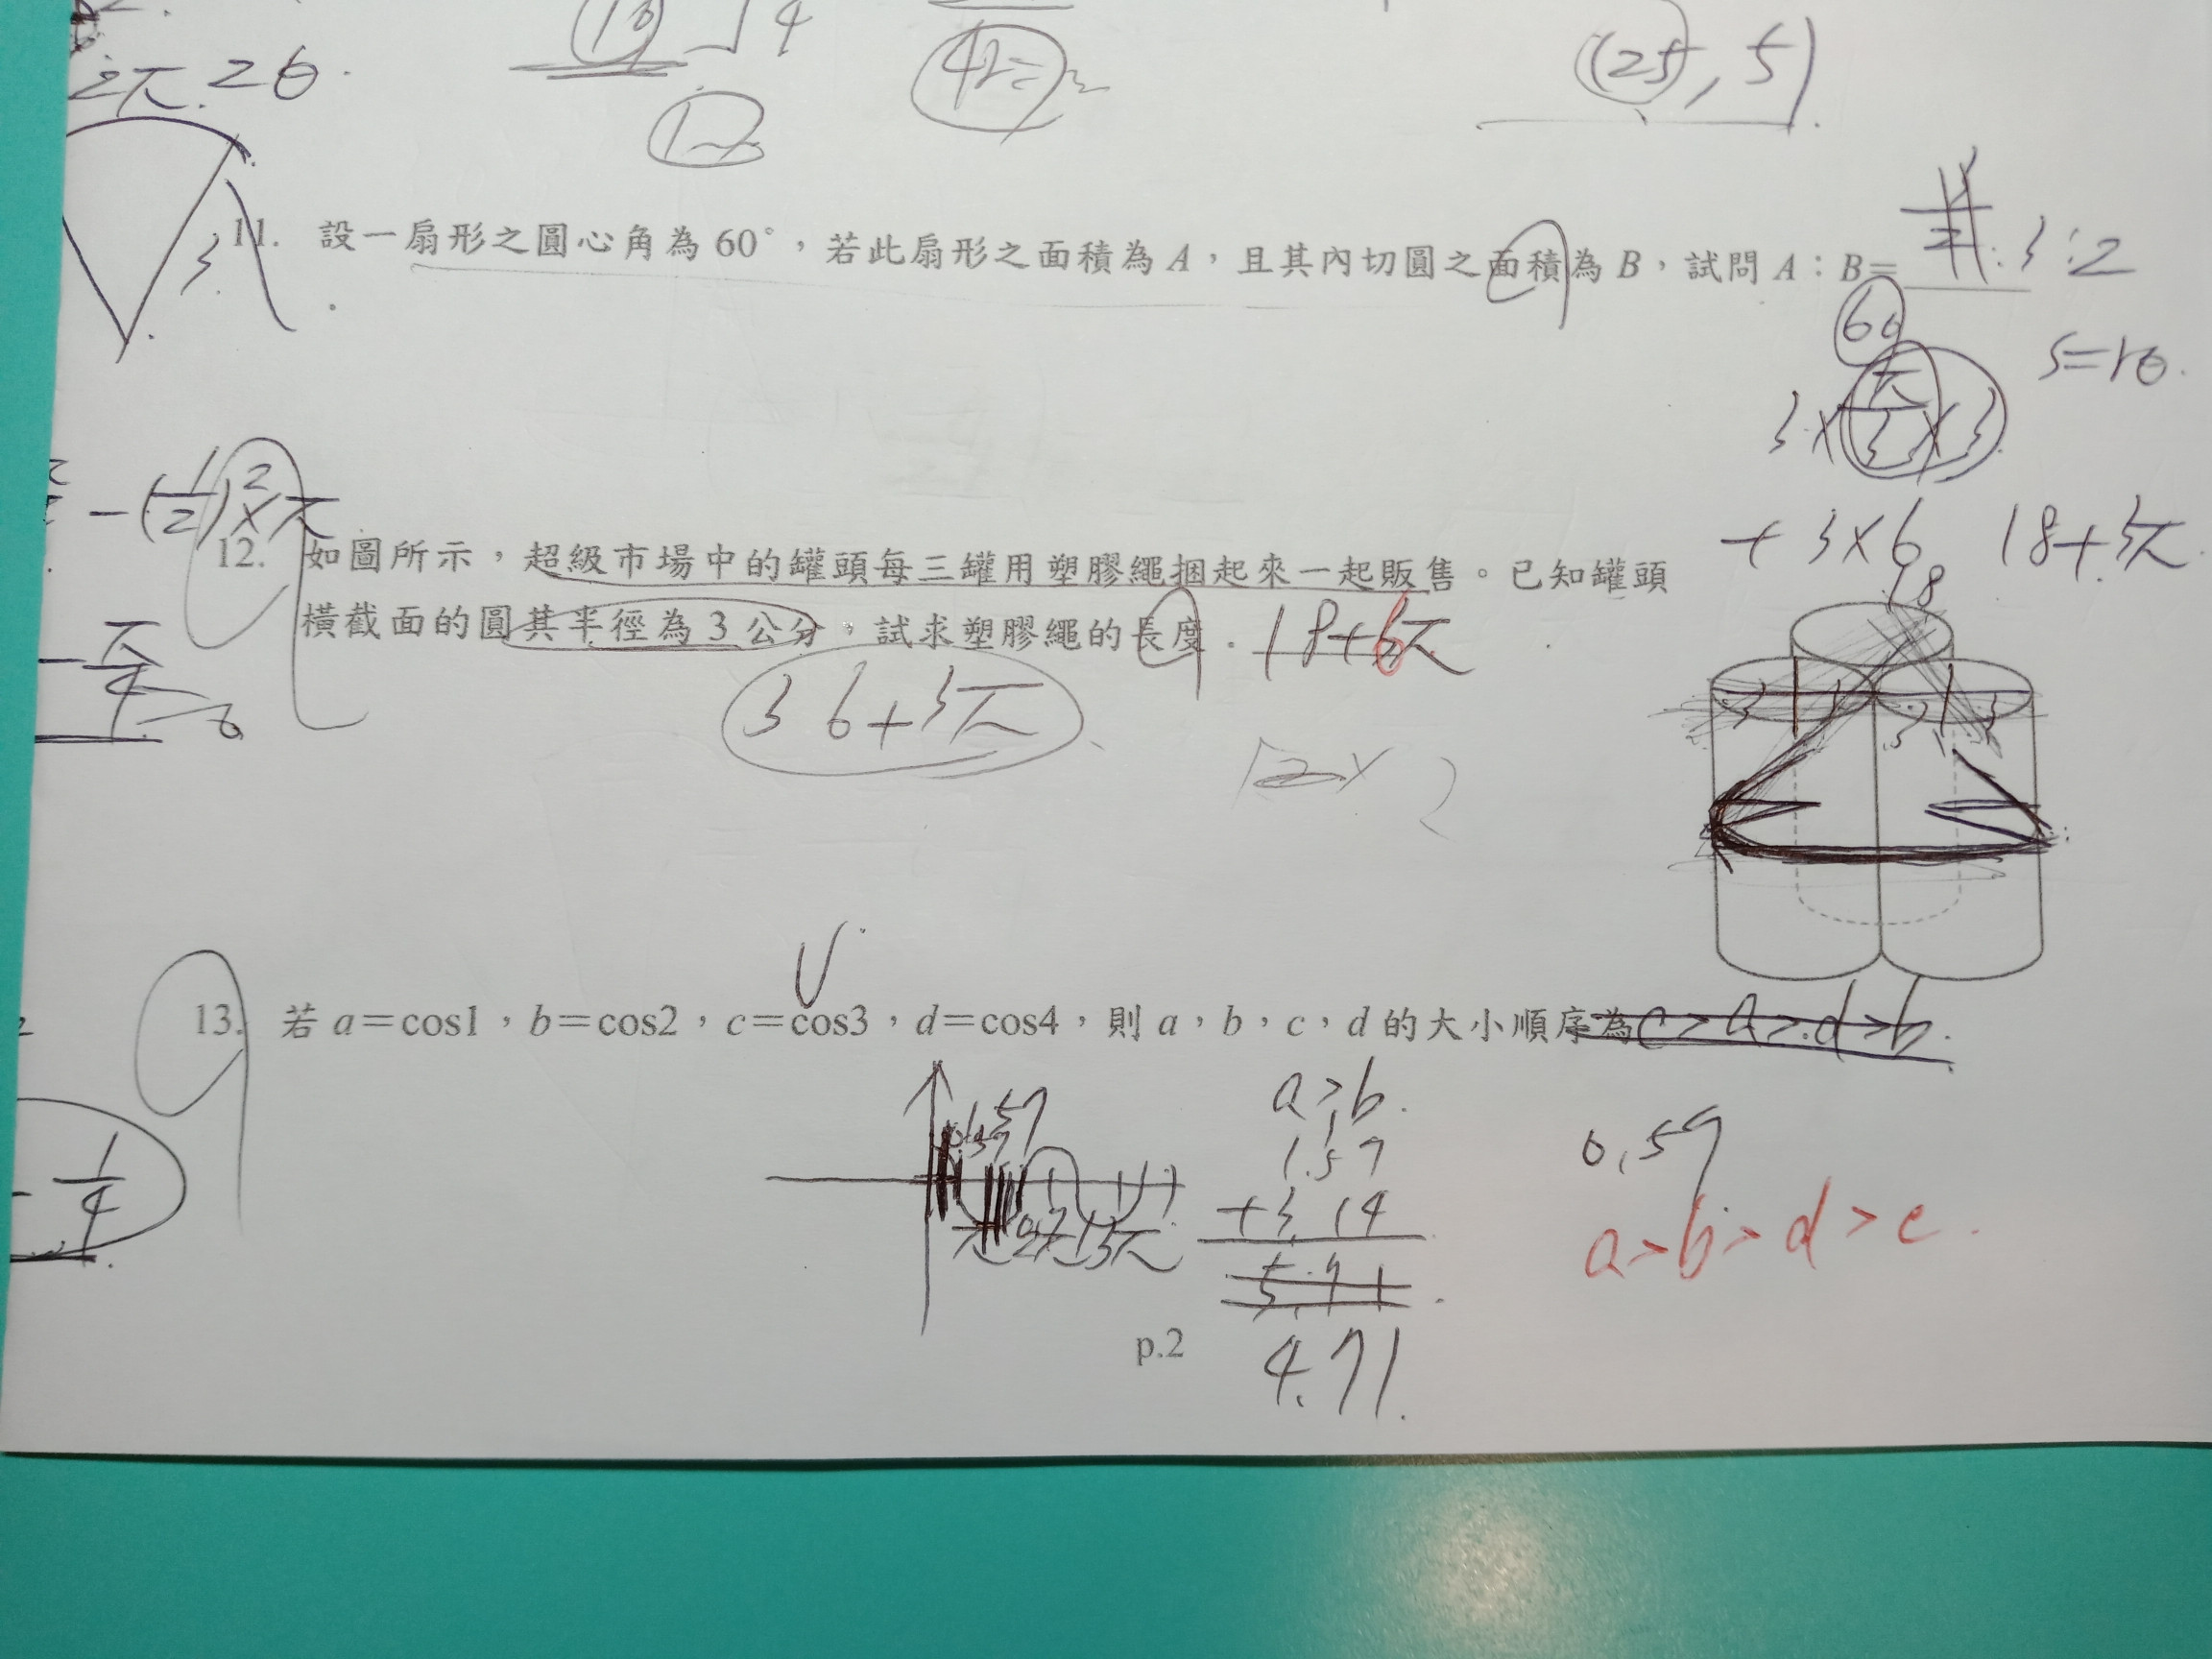 2π.26.
10
4
42=
12
(25, 5)
11. 設一扇形之圓心角為 60°,若此扇形之面積為 A,且其內切圓之面積為 B,試問 A:B= 3:2
60
S=rθ.
3×π/3×3
-(1/2)²×π
+3×6 18+3π.
18
12. 如圖所示,超級市場中的罐頭每三罐用塑膠繩捆起來一起販售。已知罐頭
橫截面的圓其半徑為 3 公分,試求塑膠繩的長度. 18+6π
36+3π
12×2
13. 若 a=cos1,b=cos2,c=cos3,d=cos4,則 a,b,c,d 的大小順序為 c>a>d>b.
a>b.
1.57
1.57
0.57
+3.14
a>b>d>c.
-1/4
p.2
4.71.